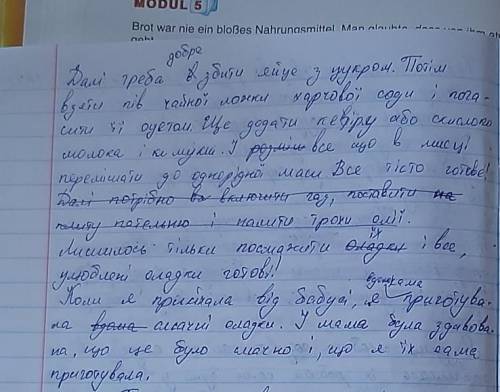 MODUL 5
Brot war nie ein bloßes Nahrungsmittel. Man glaubte, dass von ihm
geht
добре
Далі треба взбити яйце з цукром. Потім
взяти пів чайної ложки харчової соди і пога-
сити її оцетом. Ще додати кефіру або скислого
молока і ки муки. І розміш все що в мисці
перемішати до однорідної маси Все тісто готове!
Далі потрібно вк включити газ, поставити на
плиту пательню і налити трохи олії.
Лишилось тільки посмажити оладки їх і все,
улюблені оладки готові!
Коли я приїхала від бабусі, я вдома приготува-
ла вдома смачні оладки. І мама була здивова-
на, що це було смачно і, що я їх сама
приготувала.